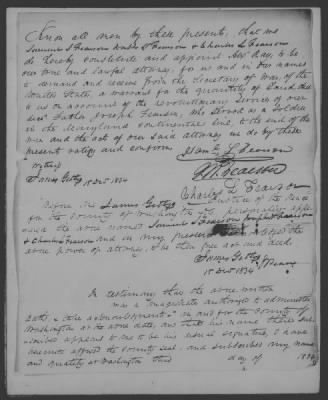 Know all men by these presents, that we
Samuel S Fearson Joseph W Fearson & Charles L Fearson
do hereby constitute and appoint Alex Ray, to be,
our true and lawful attorney, for us and in our names
to demand and receive from the Secretary of War, of the
United States, a warrant for the quantity of Land due
to us on account of the revolutionary services of our
Father Joseph Fearson, who served as a Soldier
in the Maryland continental line, to the end of the
war and the act of our said attorney we do by these
present ratify and confirm
Saml S Fearson
Witness
J W Fearson
James Getty
15 Decr 1834
Charles L Fearson
Before me James Getty a Justice of the Peace
for the County of Washington personally appe
said the above named Samuel S Fearson Joseph W Fearson
& Charles Fearson and in my presence the
above power of attorney, to be their free act and deed
James Getty
J Peace
15 Decr 1834
In testimony that the above written
was a magistrate authorized to administer
oaths & take acknowledgments in and for the County of
Washington at the above date, and that his name there sub
scribed appears to me to be his usual signature, I have
hereunto affixed the County seal and subscribed my name
and quality at Washington this day of 183